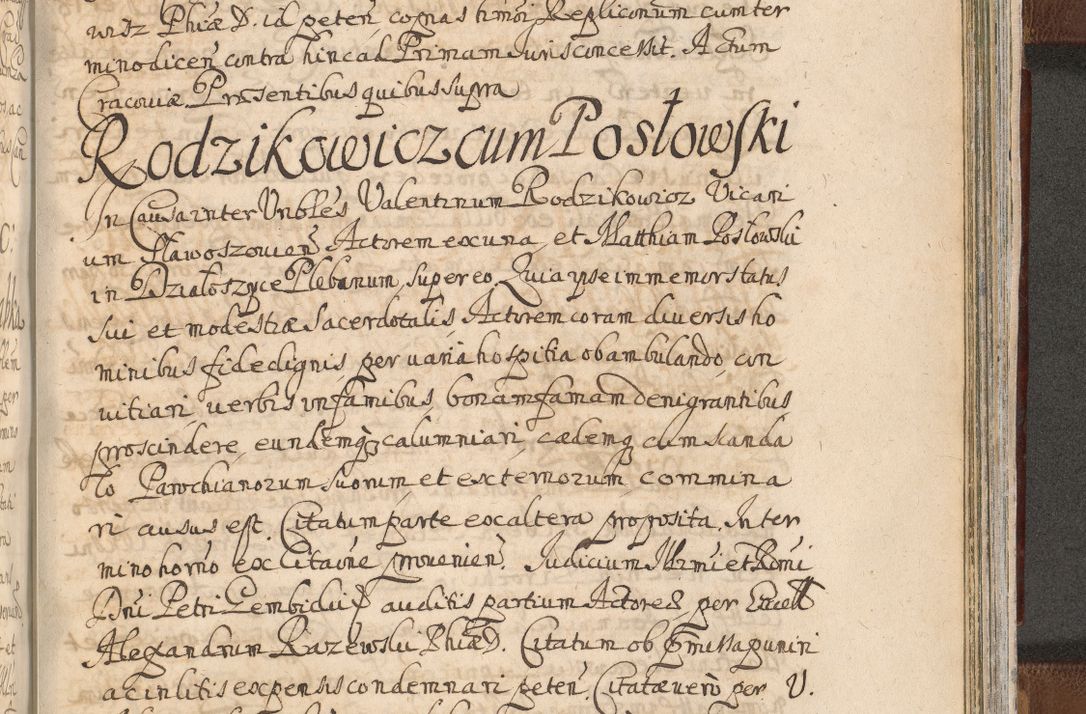 urdz Phiæ D. id peteñ copias hmõi Repliconum cum ter
mino diceñ contra hinc ad Primam Juris concessit. Actum
Cracoviæ Præsentibus quibus supra
Rodzikowicz cum Posłowski
In Causa inter Vnbles Valentinum Rodzikowicz Vicari
um Sławoszovieñ Actorem ex una, et Matthiam Posłowski
in Działoszyce Plebanum, super eo, Quia ipse immemor status
sui et modestiæ Sacerdotalis Actorem coram diversis ho
minibus fide dignis per varia hospitia obambulando, con
vitiari verbis infamibus, bonam famam denigrantibus
proscindere, eundemq3 calumniari, cædemq3 cum scanda
lo Parochianorum suorum, et externorum, commina
ri ausus est. Citatum parte ex altera proposita. In ter
mino horño ex Citaõne provenieñ. Judicium Illrmi et Rdmi
Dñi Petri Gembicki auditis partium Actoreã per Excell
Alexandrum Razewski Phiæ D. Citatum ob præmissa puniri
ac in litis expensis condemnari peteñ. Citatæ vero per V.